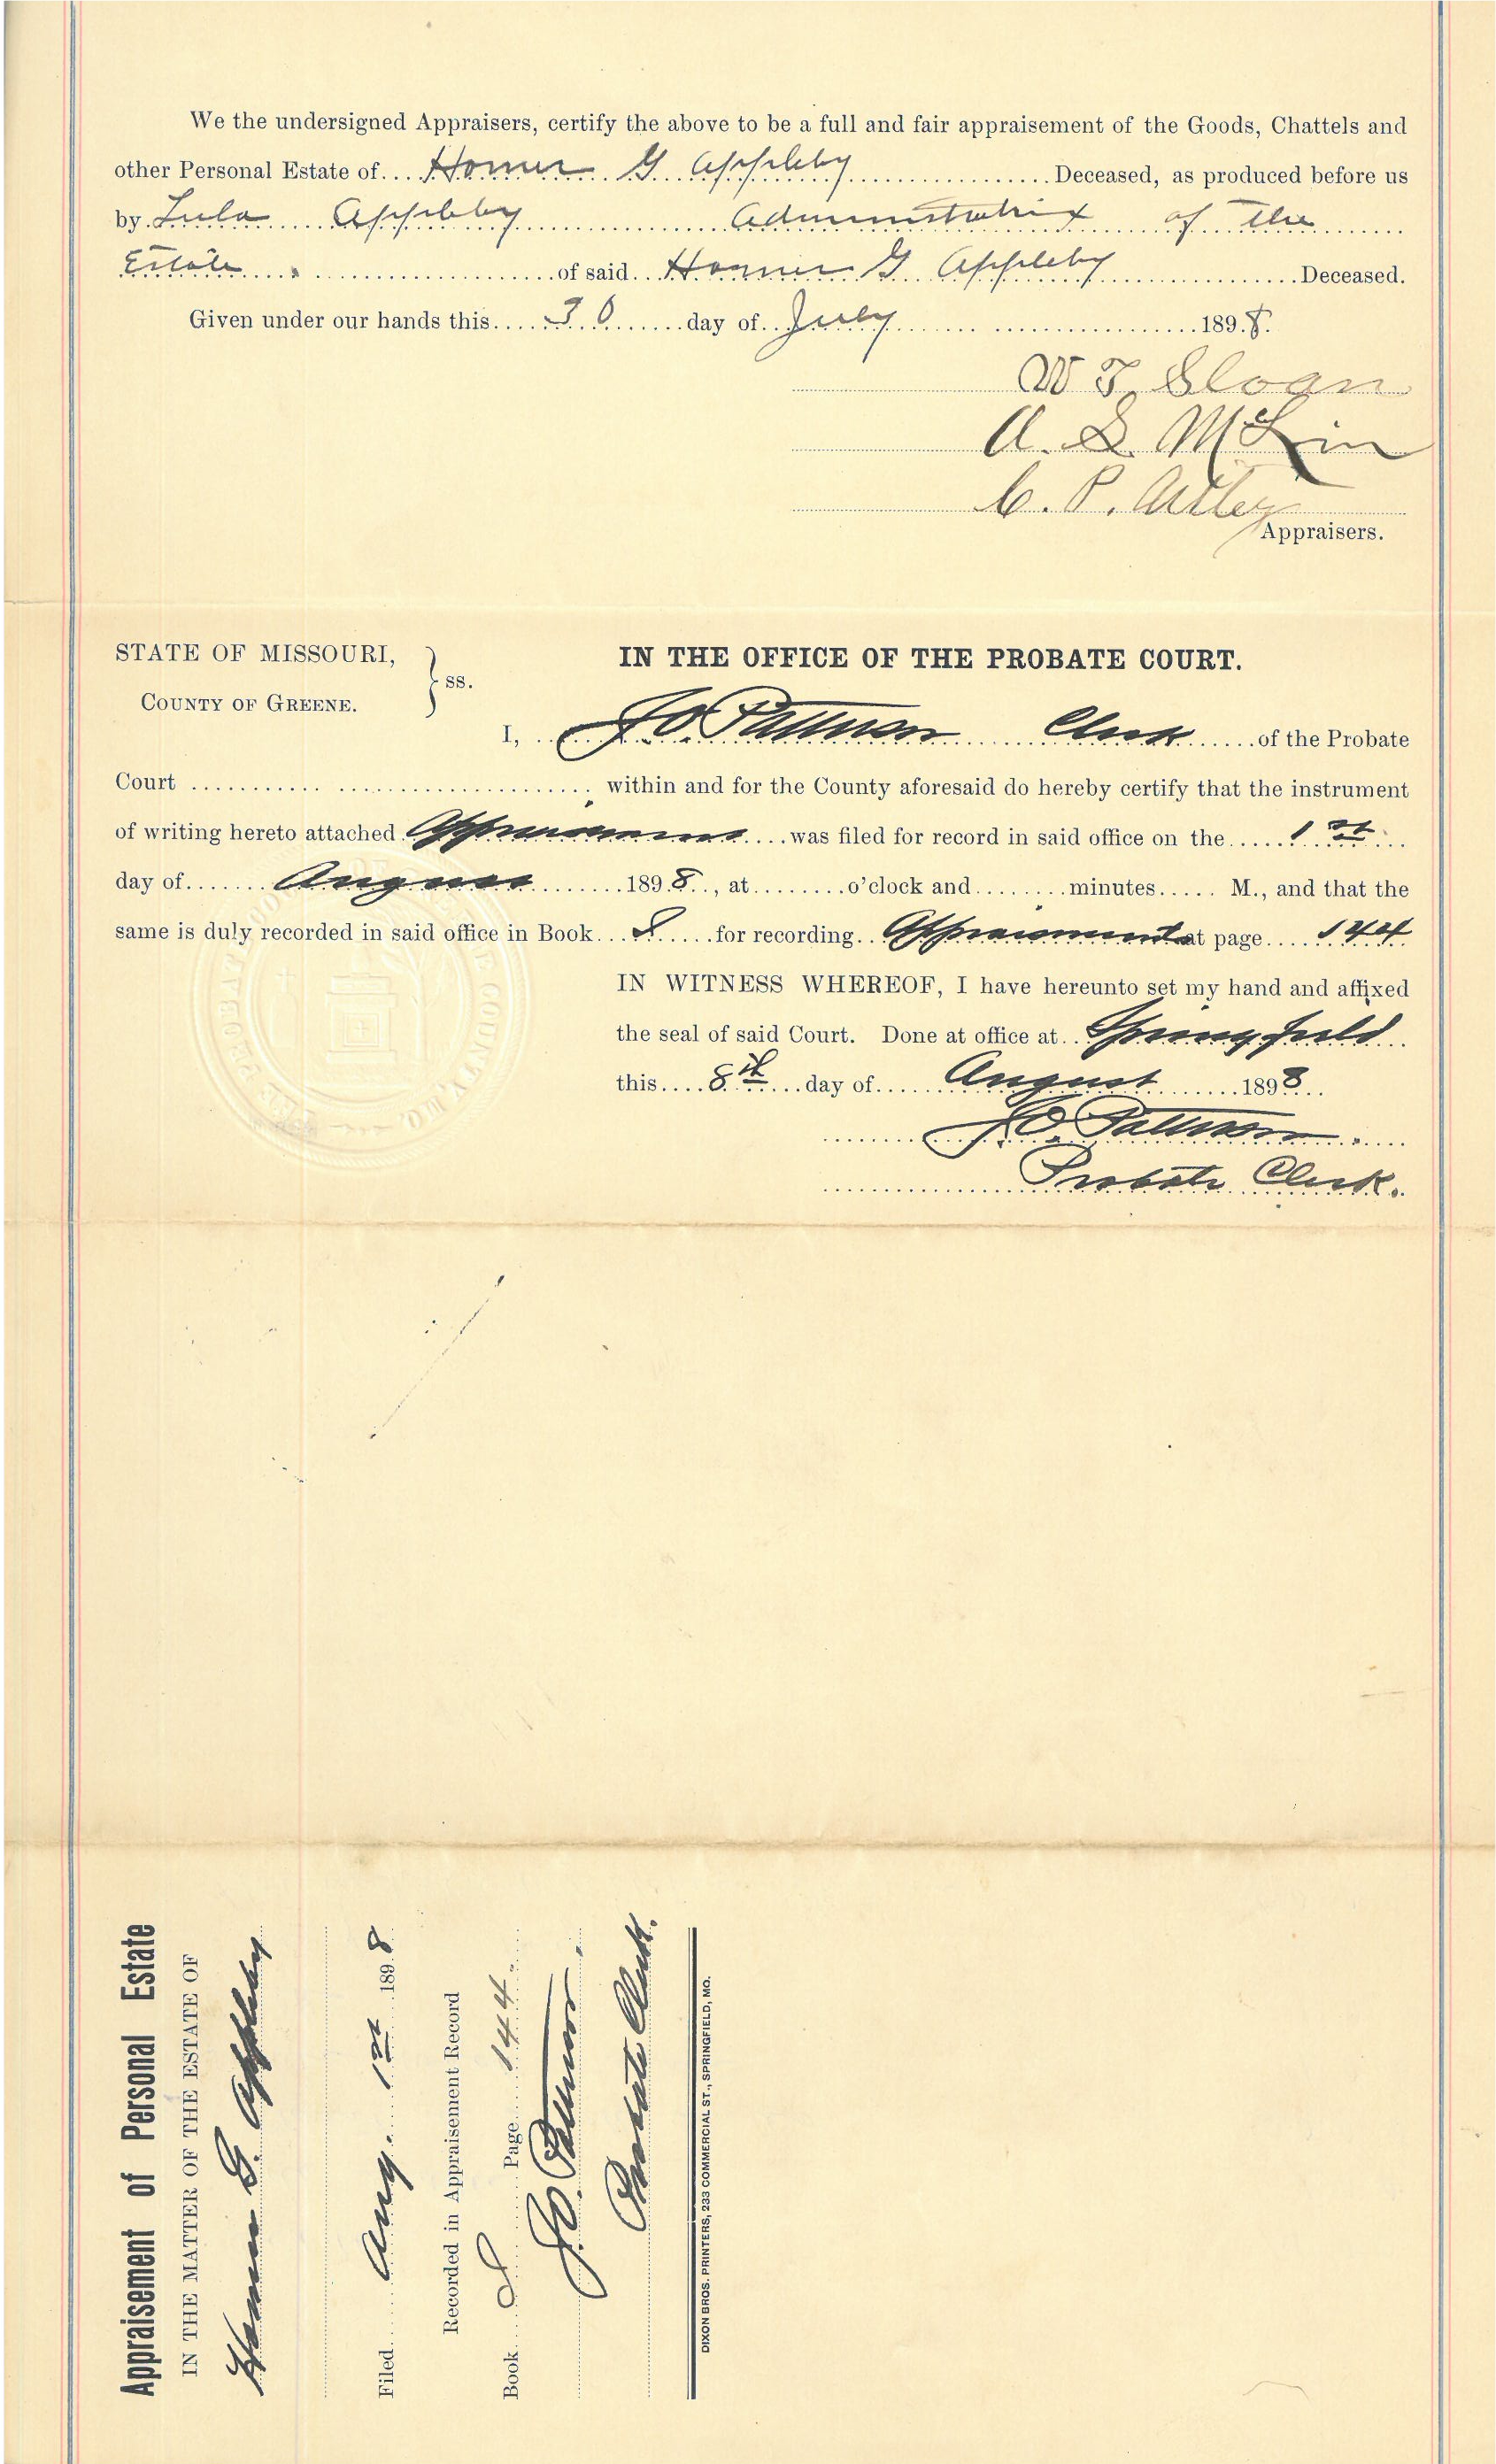 We the undersigned Appraisers, certify the above to be a full and fair appraisement of the Goods, Chattels and
other Personal Estate of.... Homer G Appleby ................ Deceased, as produced before us
by Lula Appleby ................ Administratrix of the
Estate ................ of said... Homer G Appleby ................ Deceased.
Given under our hands this..... 30 ...... day of.. July ................ 1898.
W T, Sloan
A. S. McLin
C. P.
Appraisers.
STATE OF MISSOURI,
COUNTY OF GREENE.
} ss.
IN THE OFFICE OF THE PROBATE COURT.
I, ... J O Patterson ...... Clerk ...... of the Probate
Court ................ within and for the County aforesaid do hereby certify that the instrument
of writing hereto attached Appraisement .... was filed for record in said office on the..... 1st ...
day of....... August ........ 1898.., at........ o'clock and........ minutes..... M., and that the
same is duly recorded in said office in Book... ..... for recording.. Appraisement at page.... 144
IN WITNESS WHEREOF, I have hereunto set my hand and affixed
the seal of said Court. Done at office at.. Springfield ..
this.... 8th ... day of..... August ........ 1898...
J O. Patterson
Probate Clerk.
Appraisement of Personal Estate
IN THE MATTER OF THE ESTATE OF
Homer G. Appleby
Filed...... Aug. 1st 1898
Recorded in Appraisement Record
Book.... ...... Page.... 144.
J O. Patterson.
Probate Clerk.
DIXON BROS. PRINTERS, 233 COMMERCIAL ST., SPRINGFIELD, MO.